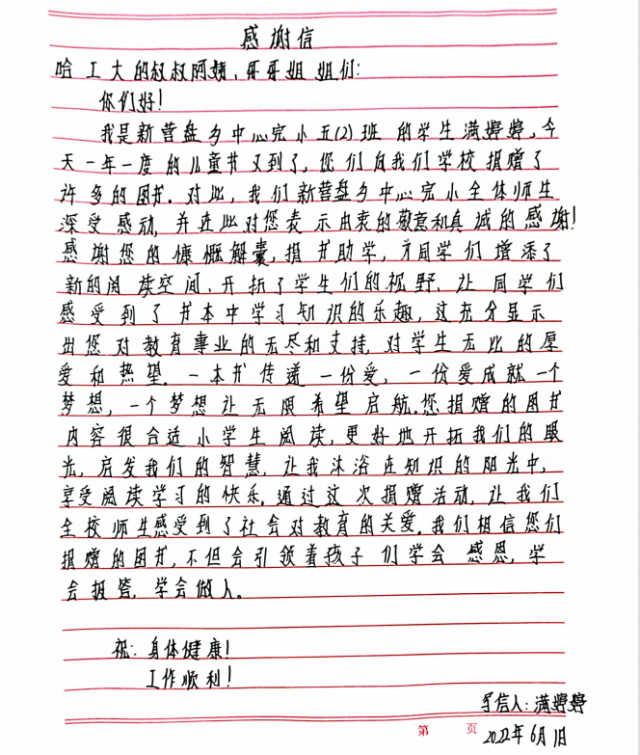 感谢信
哈工大的叔叔阿姨,哥哥姐姐们:
你们好!
我是新营盘乡中心完小五(2)班的学生满婷婷,今
天一年一度的儿童节又到了,您们向我们学校捐赠了
许多的图书。对此,我们新营盘乡中心完小全体师生
深受感动,并在此对您表示由衷的敬意和真诚的感谢!
感谢您的慷慨解囊,捐书助学,为同学们增添了
新的阅读空间,开拓了学生们的视野,让同学们
感受到了书本中学习知识的乐趣,这充分显示
出您对教育事业的无尽和支持,对学生无比的厚
爱和热望。一本书传递一份爱,一份爱成就一个
梦想,一个梦想让无限希望启航。您捐赠的图书
内容很合适小学生阅读,更好地开拓我们的眼
光,启发我们的智慧,让我沐浴在知识的阳光中,
享受阅读学习的快乐。通过这次捐赠活动,让我们
全校师生感受到了社会对教育的关爱。我们相信您们
捐赠的图书,不但会引领着孩子们学会感恩,学
会报答,学会做人。
祝:身体健康!
工作顺利!
写信人:满婷婷
第 页 2022年6月1日